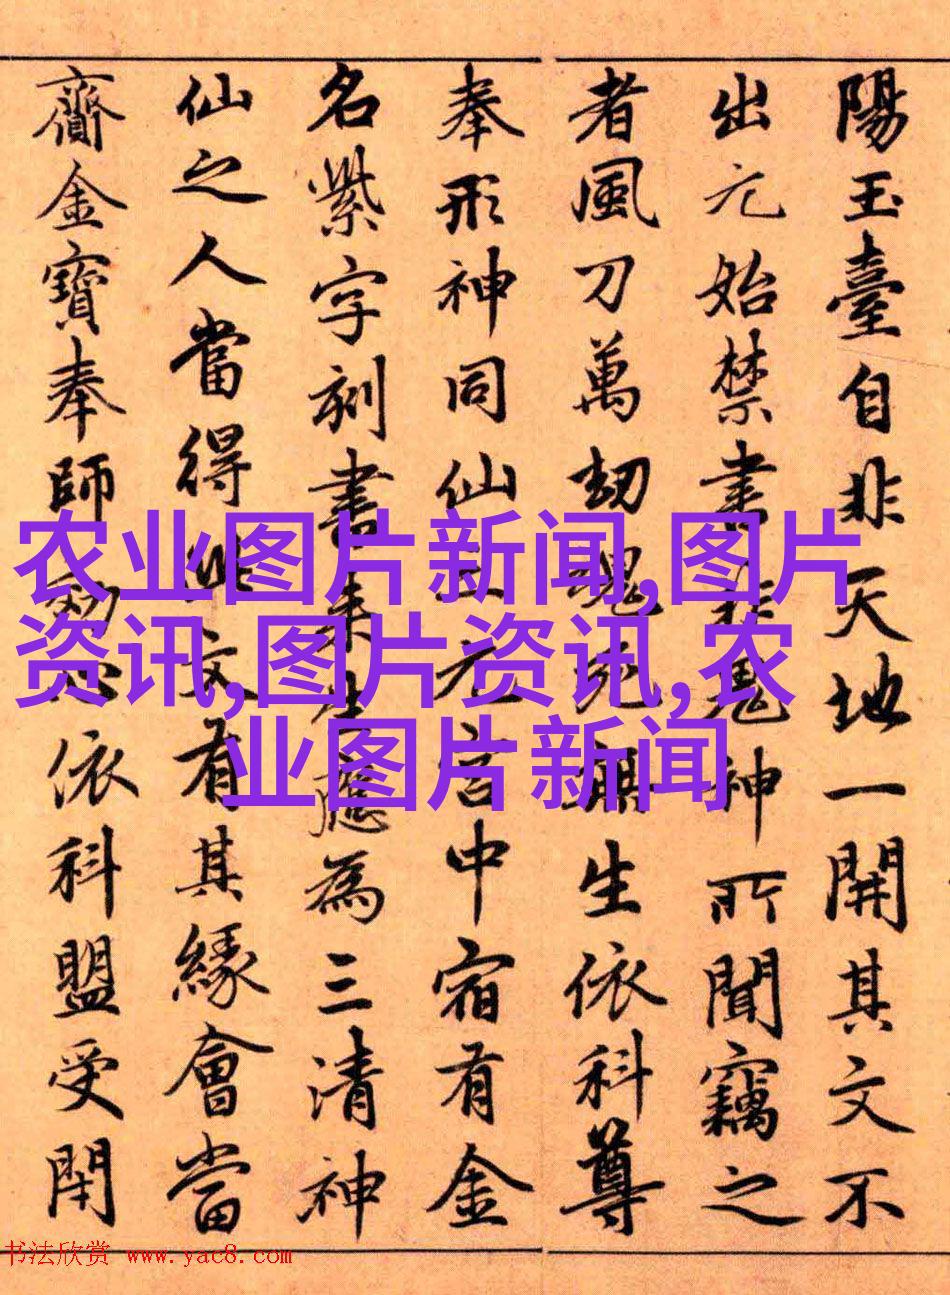 陽玉臺自非天地一開其文不
出元始禁書非鬼神所聞竊之
者風刀萬劫魂死無生依科尊
奉形神同仙上元宫中宿有金
名紫字刻書来生應為三清神
仙之人當得此文有其緣會當
齎金寶奉師 依科盟受閇
农业图片新闻,图片
资讯,图片资讯,农
业图片新闻
书法欣赏 www.yac8.com